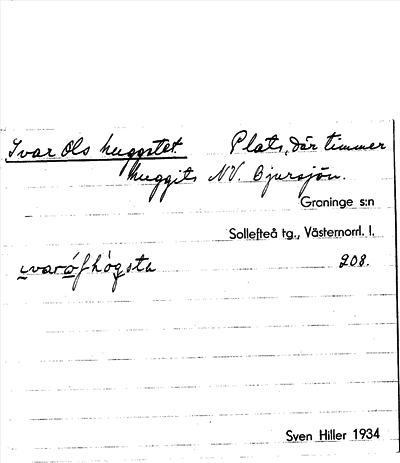 Ivar Ols huggstet. Plats, där timmer
huggits NV. Bjursjön.
Graninge s:n
Sollefteå tg., Västernorrl. l.
ıvarófhógsta 208.
Sven Hiller 1934